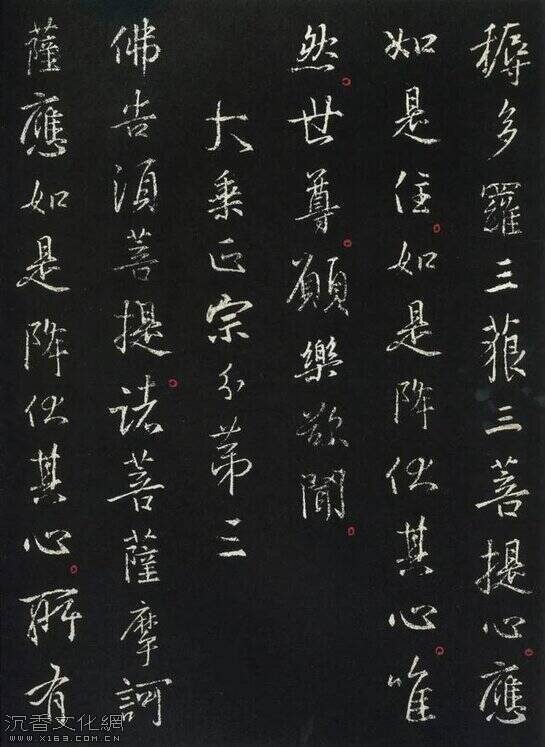 耨多羅三藐三菩提心。應
如是住。如是降伏其心。唯
然。世尊。願樂欲聞。
大乘正宗分第三
佛告須菩提。諸菩薩摩訶
薩應如是降伏其心。所有
沉香文化網
WWW.X169.COM.CN